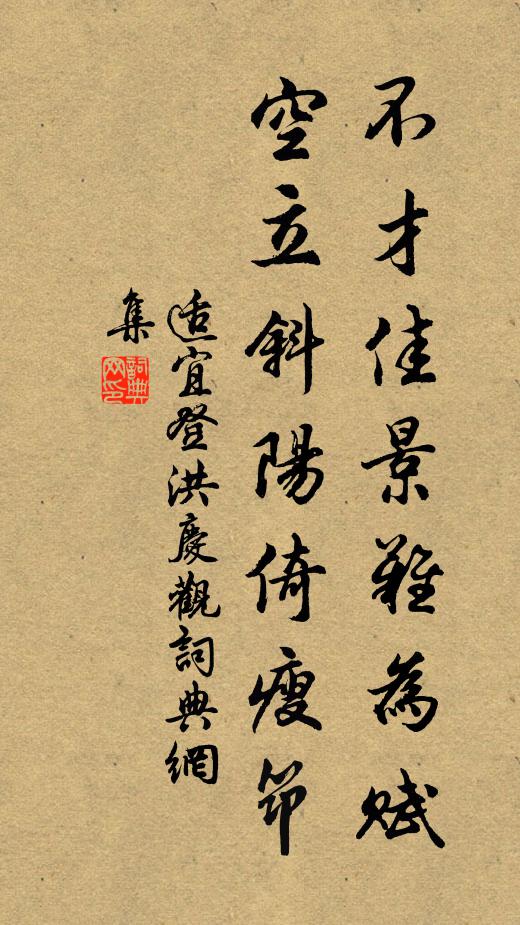 不才佳景難為賦
空立斜陽倚瘦筇
适宜登洪慶觀詞典網
集
詞典
网印